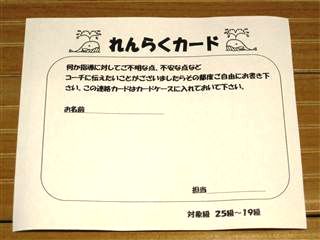 れんらくカード
何か指導に対してご不明な点、不安な点など
コーチに伝えたいことがございましたらその都度ご自由にお書き下
さい。この連絡カードはカードケースに入れておいて下さい。
お名前
担当
対象級 25級～19級